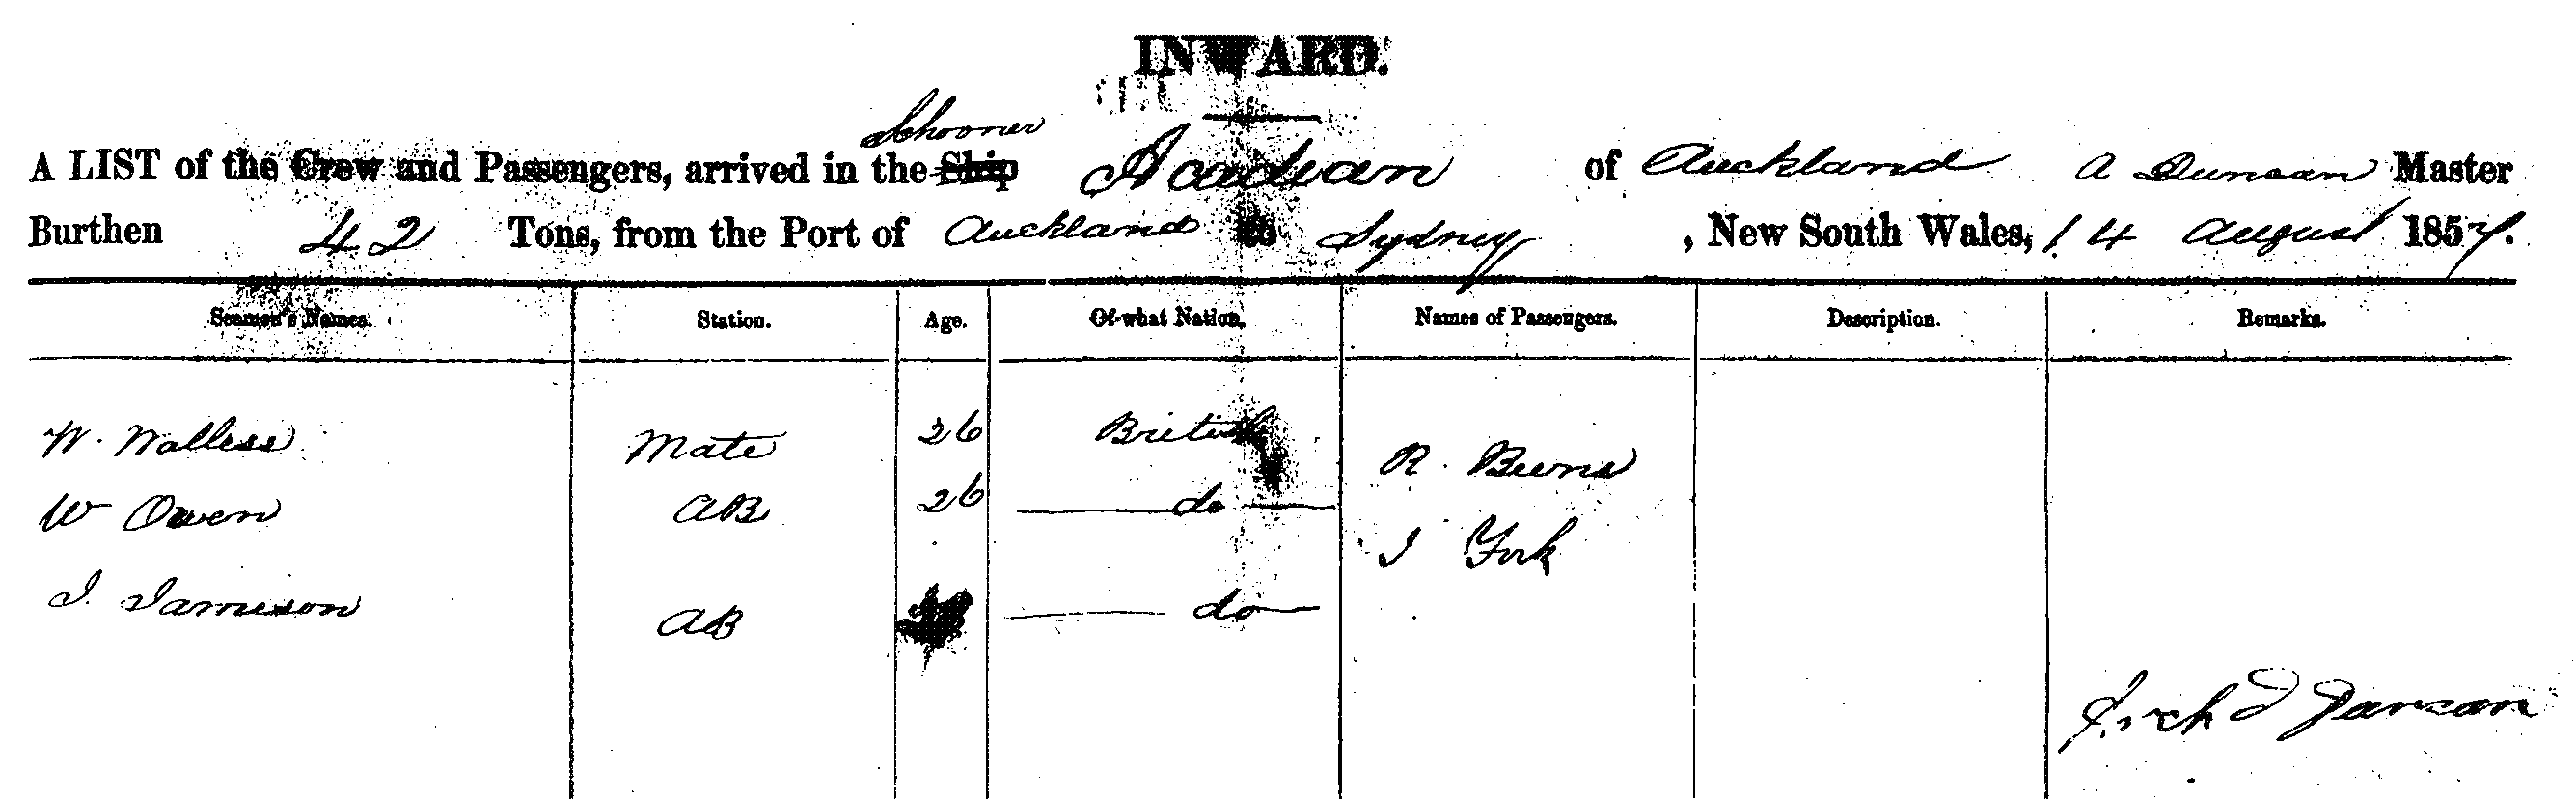 INWARD.
Schooner
A LIST of the Crew and Passengers, arrived in the Ship Acadian of Auckland A Duncan Master
Burthen 42 Tons, from the Port of Auckland to Sydney, New South Wales, 14 August 1857.
Seamen's Names. Station. Age. Of what Nation. Names of Passengers. Description. Remarks.
W. Walless Mate 26 British R. Burns
W Owen AB 26 do J York
J. Jamieson AB do
Archd Duncan